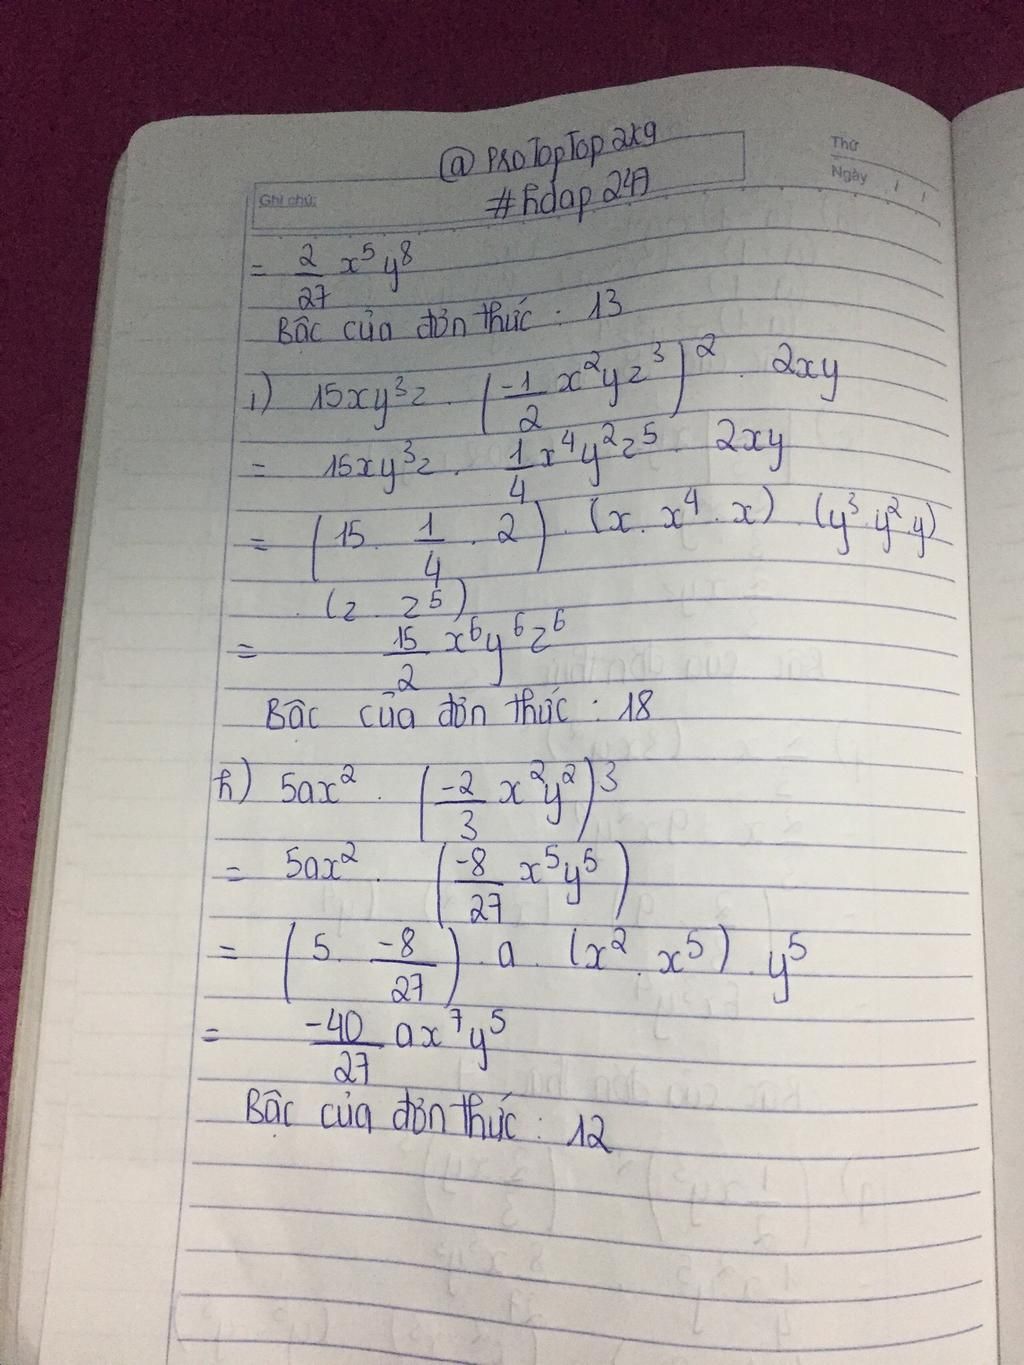 @PROTopTop2k9
Thứ
Ghi chú:
#hdap247
Ngày / /
= 2/27 x⁵y⁸
Bậc của đơn thức : 13
i) 15xy³z . (-1/2 x²yz³)² . 2xy
= 15xy³z . 1/4 x⁴y²z⁵ . 2xy
= (15 . 1/4 . 2) . (x . x⁴ . x) (y³ . y² . y)
. (z . z⁵)
= 15/2 x⁶y⁶z⁶
Bậc của đơn thức : 18
h) 5ax² . (-2/3 x²y²)³
= 5ax² . (-8/27 x⁵y⁵)
= (5 . -8/27) . a . (x² . x⁵) . y⁵
= -40/27 ax⁷y⁵
Bậc của đơn thức : 12